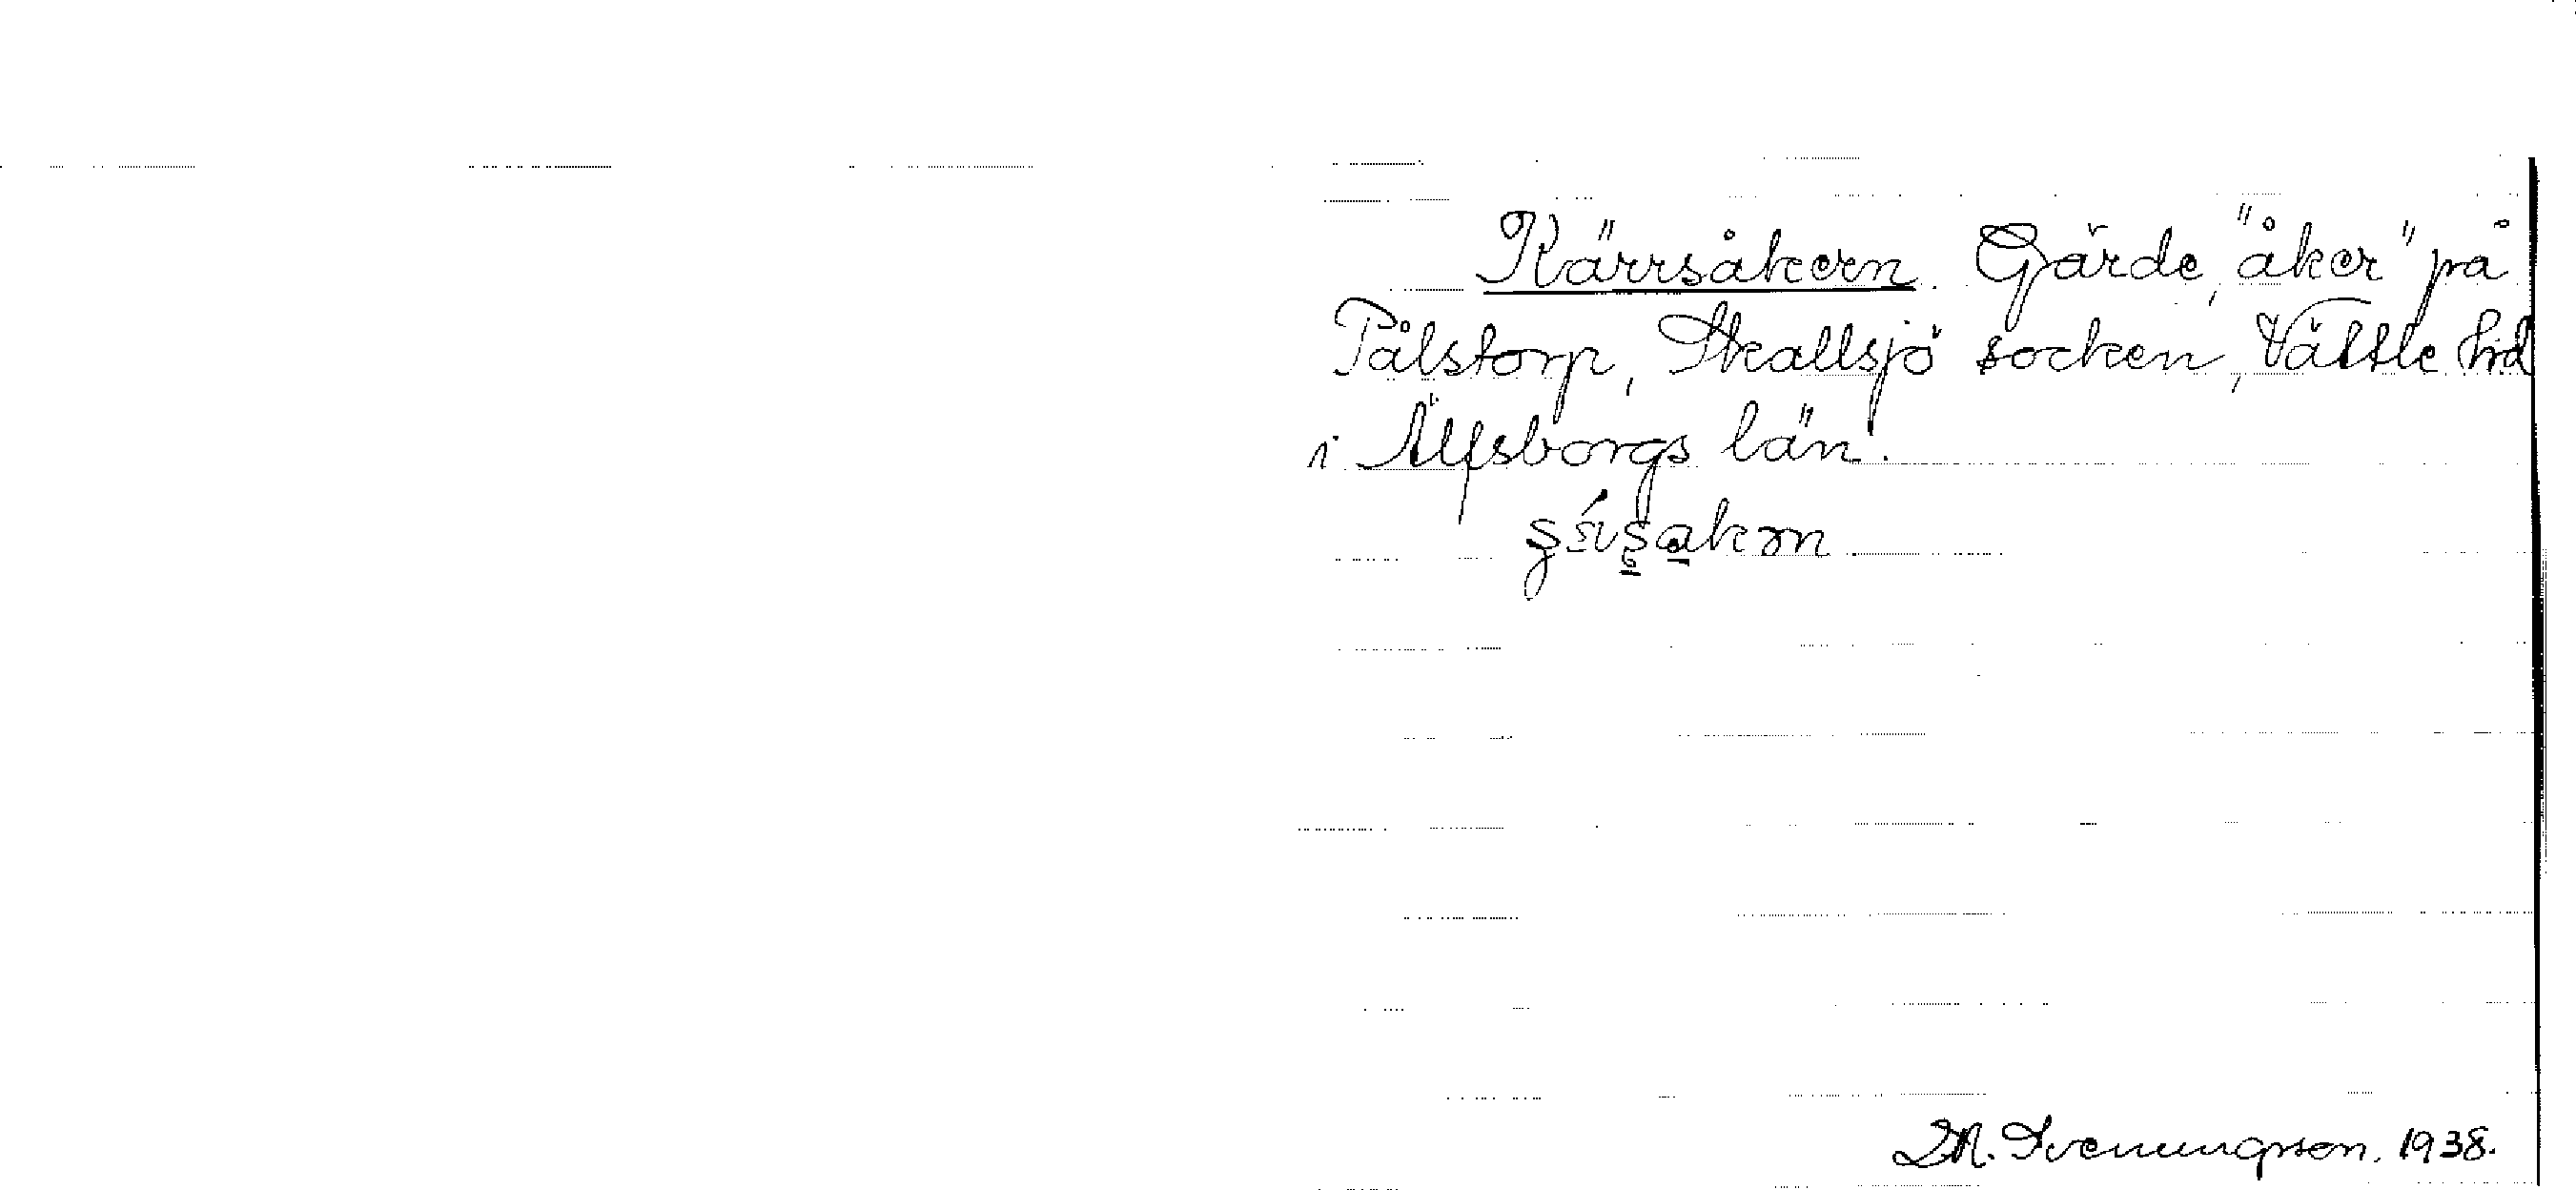 Kärrsåkern. Gärde, "åker" på
Pålstorp, Skallsjö socken, Vättle hd
i Älfsborgs län.
Svenungsson. 1938.